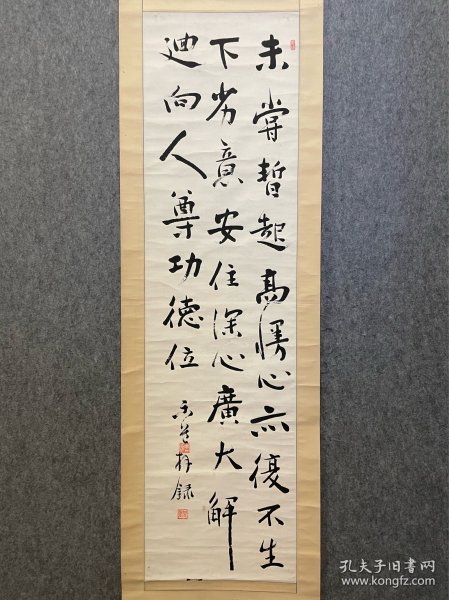 未嘗暫起高慢心亦復不生
下劣意安住深心廣大解
迴向人尊功德位
拜録
孔夫子旧书网
www.kongfz.com